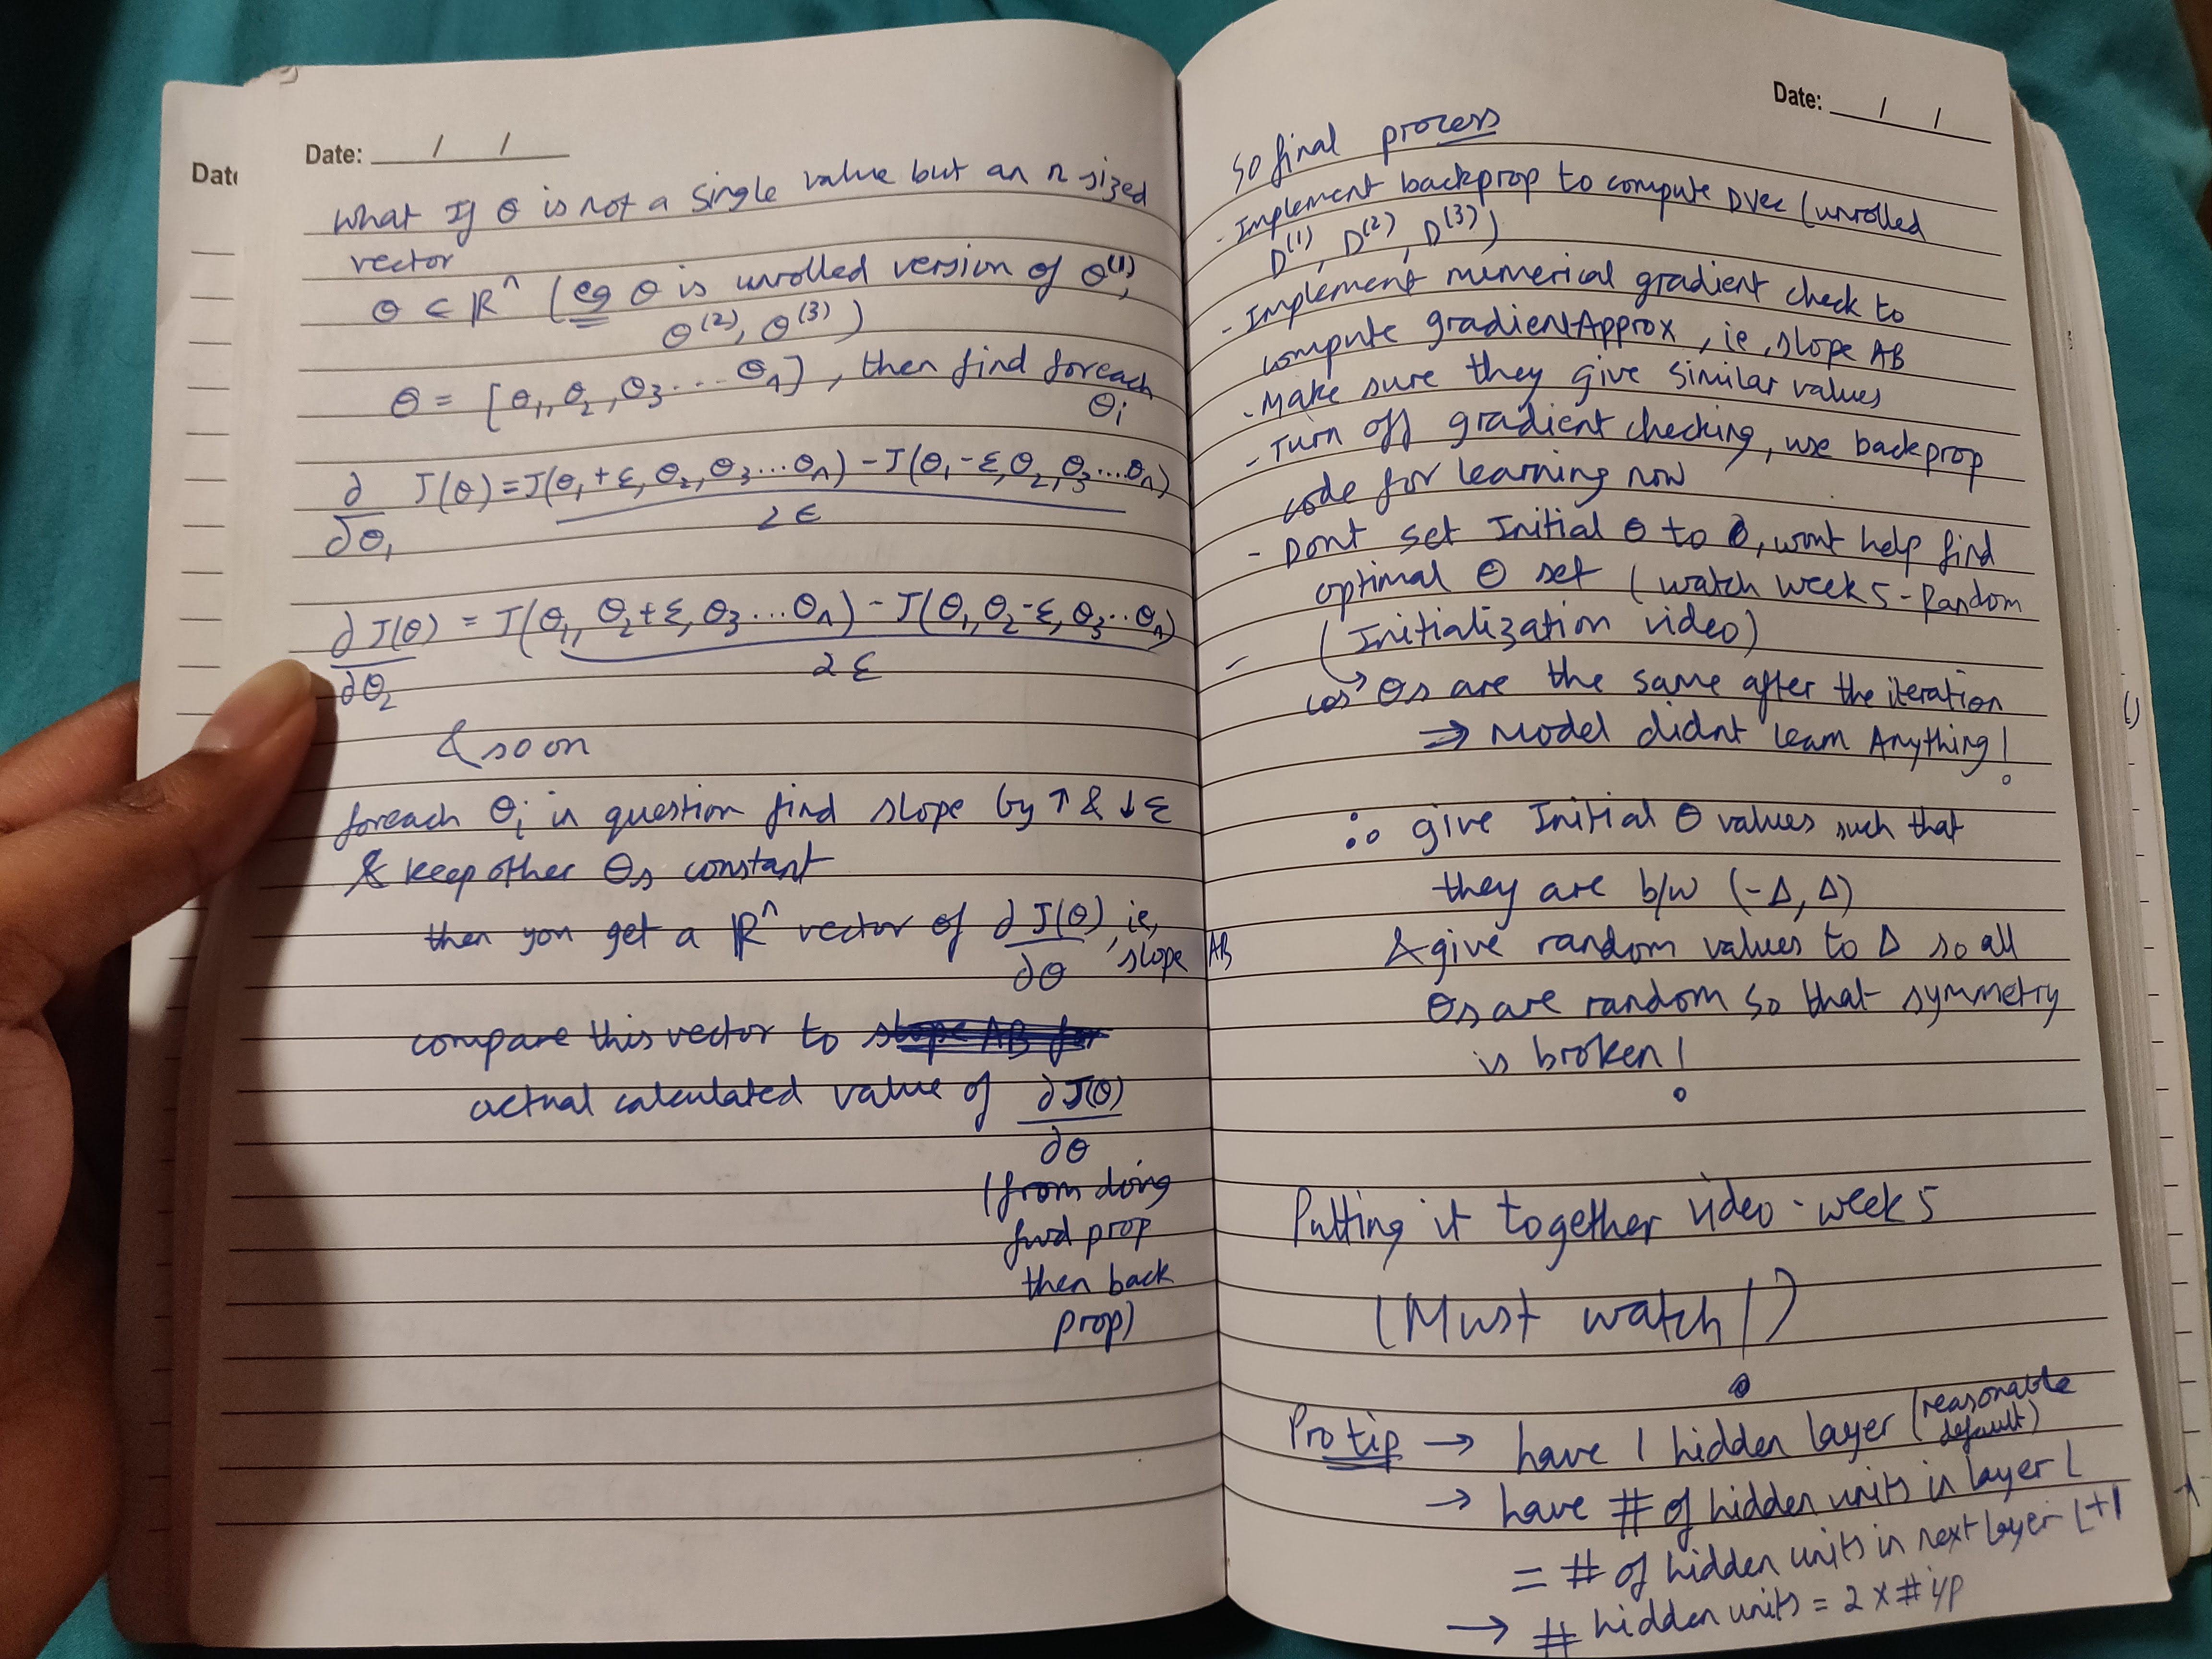 Date
Date: / /
What If θ is not a single value but an n sized
vector
θ ⊂ ℝⁿ (eg θ is unrolled version of θ⁽¹⁾,
θ⁽²⁾, θ⁽³⁾)
θ = [θ₁, θ₂, θ₃ ... θₙ], then find foreach
θᵢ
∂/∂θ₁ J(θ) = J(θ₁+ε, θ₂, θ₃...θₙ) - J(θ₁-ε, θ₂, θ₃...θₙ) / 2ε
∂J(θ)/∂θ₂ = J(θ₁, θ₂+ε, θ₃...θₙ) - J(θ₁, θ₂-ε, θ₃...θₙ) / 2ε
& so on
foreach θᵢ in question find slope by ↑ & ↓ ε
& keep other θs constant
then you get a ℝⁿ vector of ∂J(θ)/∂θ, ie, slope AB
compare this vector to slope AB for
actual calculated value of ∂J(θ)/∂θ
(from doing
fwd prop
then back
prop)
Date: / /
So final process
- Implement backprop to compute DVec (unrolled
D⁽¹⁾, D⁽²⁾, D⁽³⁾)
- Implement numerical gradient check to
compute gradientApprox, ie, slope AB
- Make sure they give similar values
- Turn off gradient checking, use backprop
code for learning now
- Dont set Initial θ to 0, wont help find
optimal θ set (watch week 5 - Random
- (Initialization video)
cos → θs are the same after the iteration
⇒ Model didnt learn Anything!
∴ give Initial θ values such that
they are b/w (-Δ, Δ)
& give random values to Δ so all
θs are random so that symmetry
is broken!
Putting it together video - week 5
(Must watch!)
Pro tip → have 1 hidden layer (reasonable
default)
→ have # of hidden units in layer L
= # of hidden units in next layer L+1
→ # hidden units = 2 x # i/p